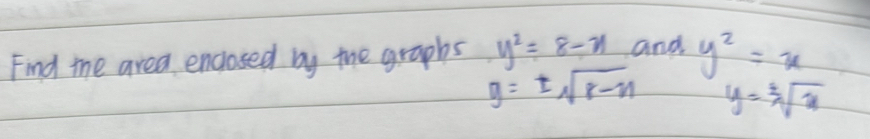 Find the area enclosed by the graphs y² = 8-x and y² = x
y = ±√8-x y = ±√x